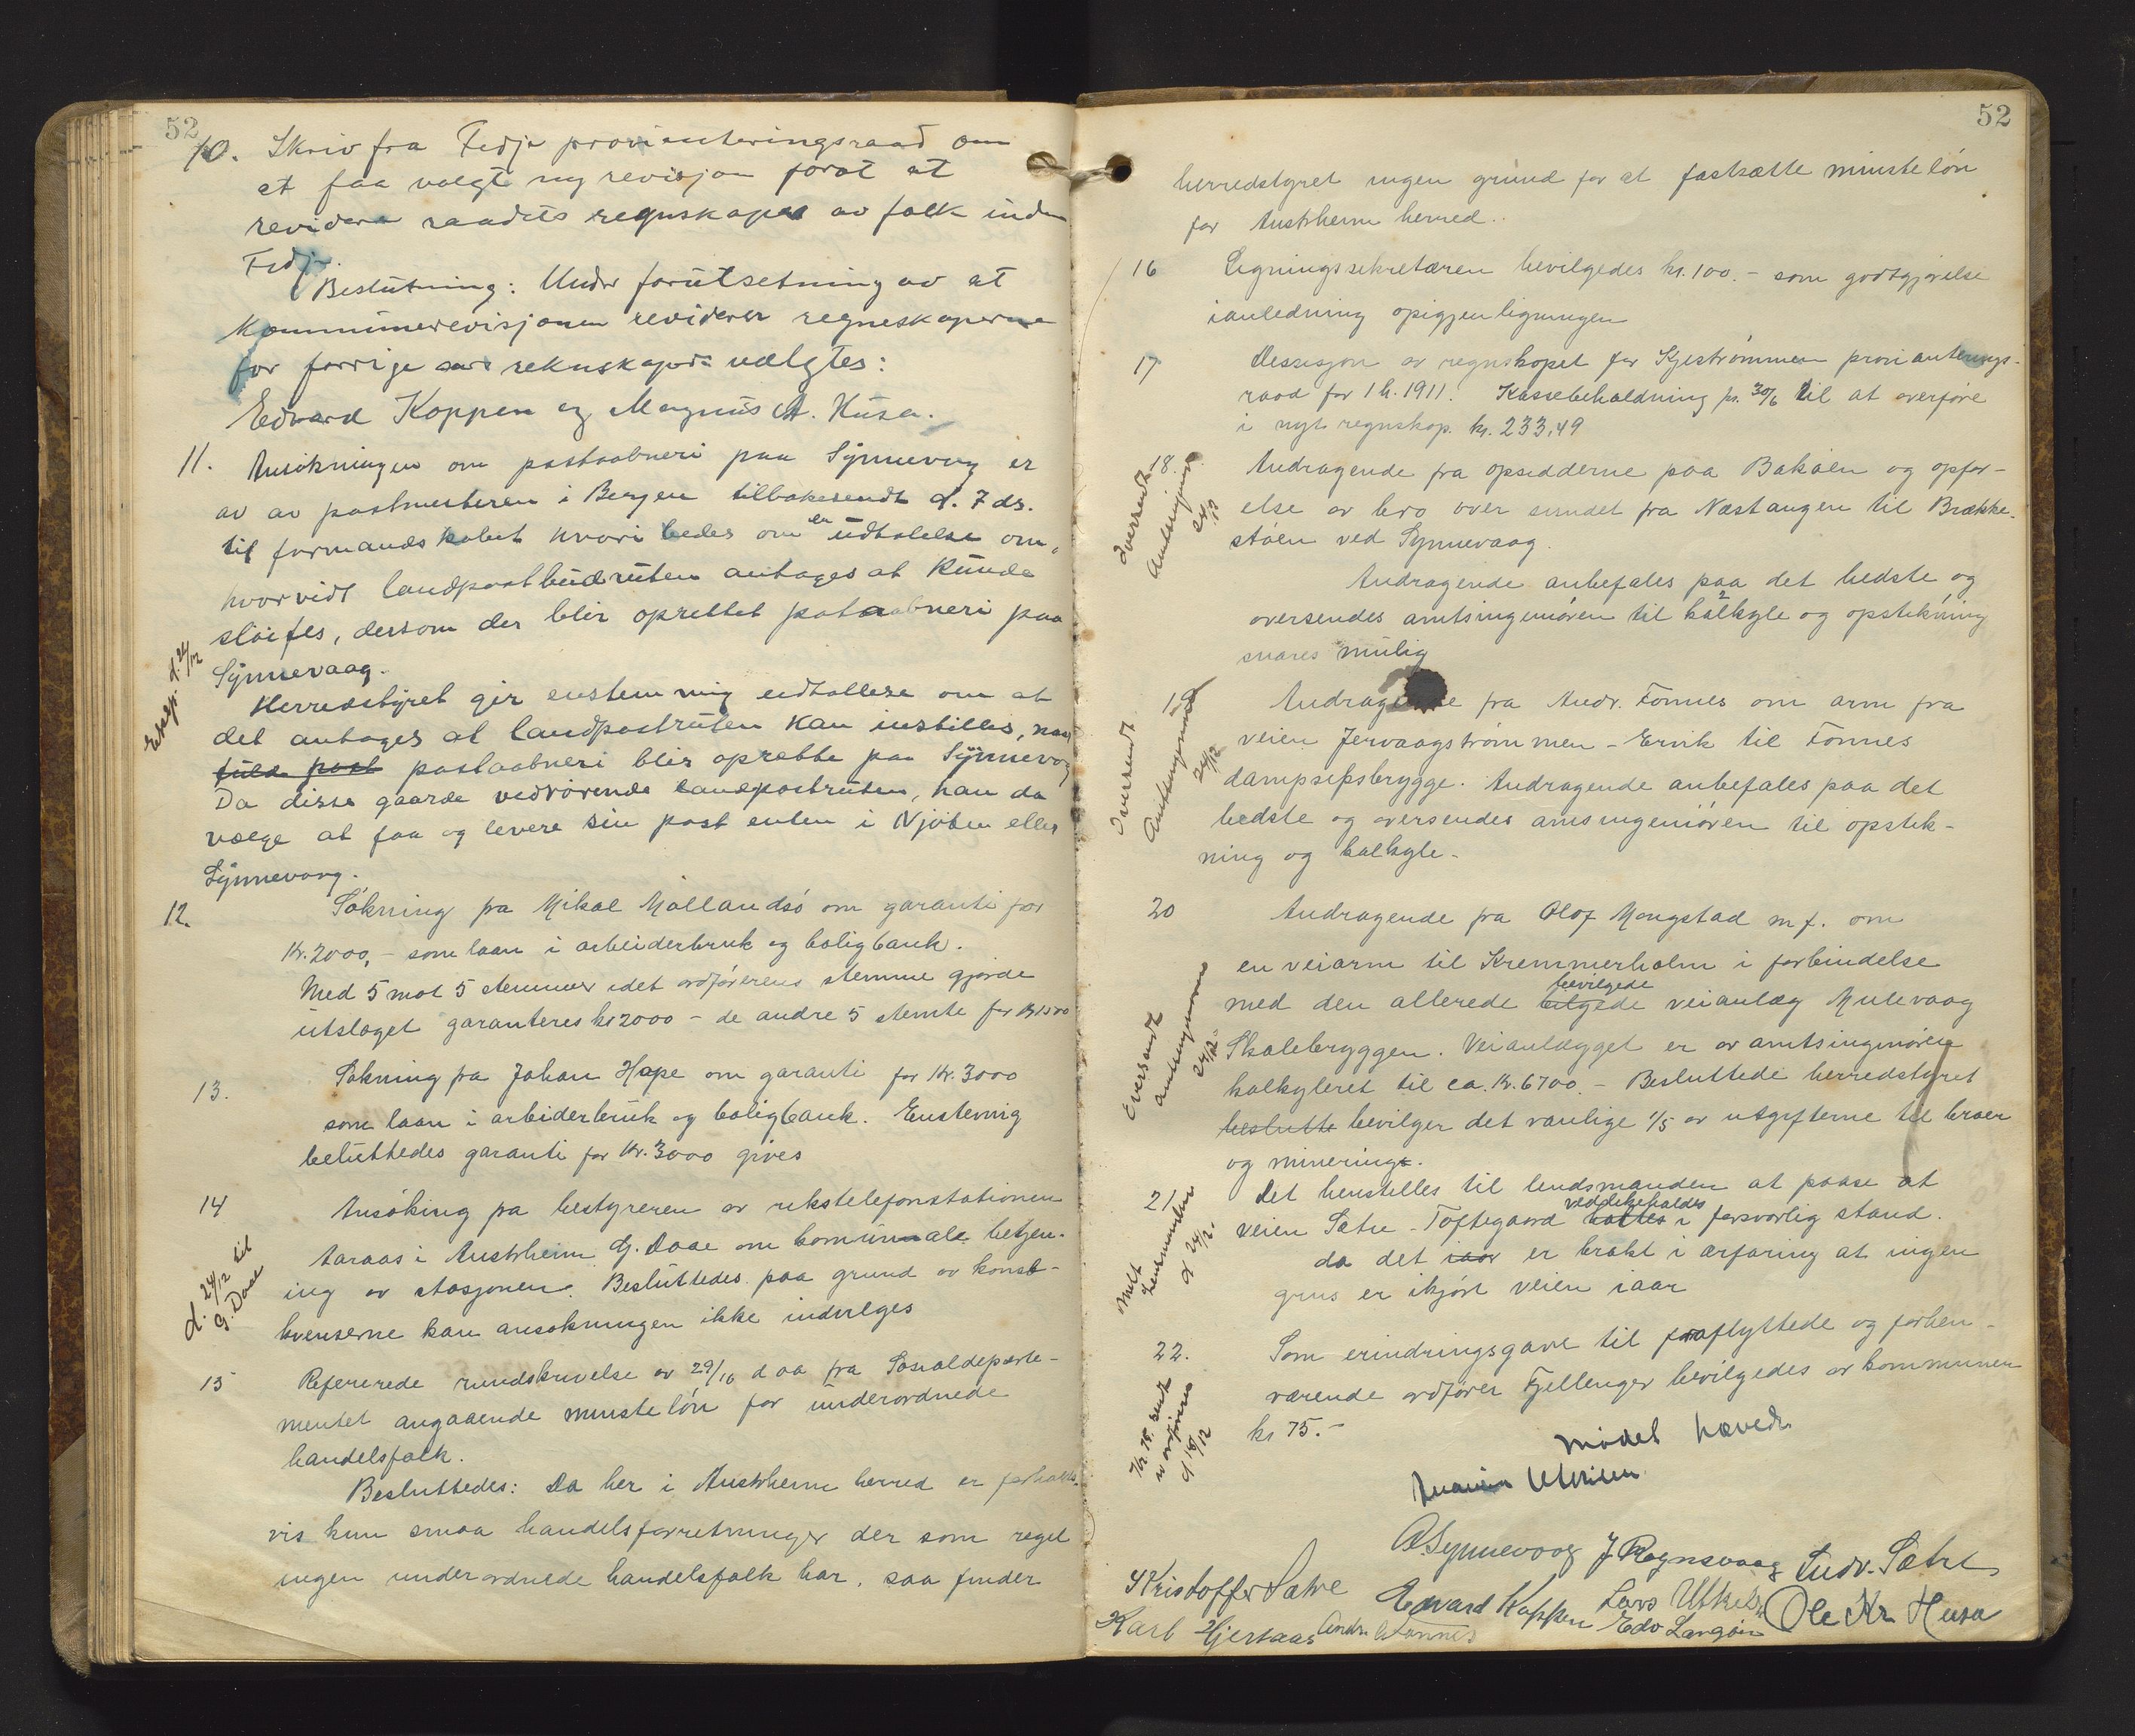 52
10. Skriv fra Fedje provianteringsraad om
at faa valgt ny revisjon forat at
revidere raadets regnskaper av folk inden
Fedje.
Beslutning: Under forutsetning av at
kommunerevisjonen reviderer regneskaperne
for forrige aars rekuskaper vælgtes:
Edvard Koppen og Magnus A. Husa.
11. Ansökningen om postaabneri paa Synnevog er
av av postmesteren i Bergen tilbakesendt d. 7 ds.
til formandskabet hvori bedes om en udtalelse om,
hvorvidt landpostbudruten antages at kunde
slöifes, dersom der blir oprettet postaabneri paa
Synnevaag.
Eksp. d. 24/12
Herredstyret gir enstemmig udtallese om at
det antages at landpostruten kan instilles, naar
fuld post postaabneri blir oprette paa Synnevog
Da disse gaarde vedrörende landpostruten, kan da
vælge at faa og levere sin post enten i Njöten eller
Synnevong.
12. Sökning fra Mikal Mollandsö om garanti for
Kr. 2000,- som laan i arbeiderbruk og boligbank.
Med 5 mot 5 stemmer idet ordförerens stemme gjorde
utslaget garanteres kr 2000 - de andre 5 stemte for kr 1500
13. Sökning fra Johan Hope om garanti for Kr. 3000
som laan i arbiderbruk og boligbank. Enstemig
beluttedes garanti for Kr. 3000 gives
14 Ansöking fra bestyreren av rikstelefonstationen
Aaraas i Austrheim G. Daae om komunale betjen-
ing av stasjonen. Besluttedes paa grund av konse-
kvenserne kan ansokningen ikke indvilges
d. 24/12 til
G. Daae
15 Refererede rundskrivelse av 29/10 d aa fra Sosialdeparte-
mentet angaaende minstelön for underordnede
handelsfolk.
Besluttedes: Da her i Austrheim herred er forholds-
vis kun smaa handelsforretninger der som regel
ingen underordnede handelsfolk har, saa finder
52
herredstyret ingen grund for at fastsætte minstelön
for Austrheim herred..
16 Ligningssekretæren bevilgedes kr. 100.- som godtgjörelse
ianledning opigjenligningen
17 Dessisjon av regnskapet for Kjeströmmen provianterings-
raad for 1 h. 1911. Kassebeholdning pr. 30/6 til at overföre
i nyt regnskap. kr. 233,49
18. Andragende fra opsidderne paa Baköen og opför-
else av bro over sundet fra Næstangen til Brække-
stöen ved Synnevaag.
Andragende anbefales paa det bedste og
oversendes amtsingeniören til kalkyle og opstikning
snares mulig
Oversendt
Amtsingeniøren
24/12
19 Andragende fra Andr. Fonnes om arm fra
veien Jervaagströmmen - Ervik til Fonnes
dampsipsbrygge. Andragende anbefales paa det
bedste og oversendes amsingeniören til opstik-
ning og kalkyle.
Oversendt
Amtsingeniøren
24/12
20 Andragende fra Olaf Mongstad m f. om
en veiarm til Kremmerholm i forbindelse
bevilgede
med den allerede bilgede veianlæg Mulevaag
Skalebryggen. Veianlægget er av amtsingeniören
kalkyleret til ca. Kr. 6700.- Besluttede herredstyret
beslutte bevilger det vanlige 1/5 av utgifterne til broer
og minering.
Oversendt
amtsingeniøren
24/12
21 Det henstilles til lendsmanden at paase at
vedlikeholdes
veien Sætre - Toftegaard holdes i forsvarlig stand.
da det iaar er brakt i ærfaring at ingen
grus er ikjört veien iaar
Meldt
Lensmanden
d 24/12
22. Som erindringsgave til fraflyttede og forhen-
værende ordförer Fjellenger bevilgedes av kommunen
kr 75.-
Kr. 75. sendt
d 18/12
Mödet hævedes
A. Synnevaag J. Rognsvaag Andr. Sætre
Kristoffer Sætre Edvard Koppen Lars Utkilen Ole Kr. Husa
Karl Hjertaas Andr. Fonnes Edv Langöen